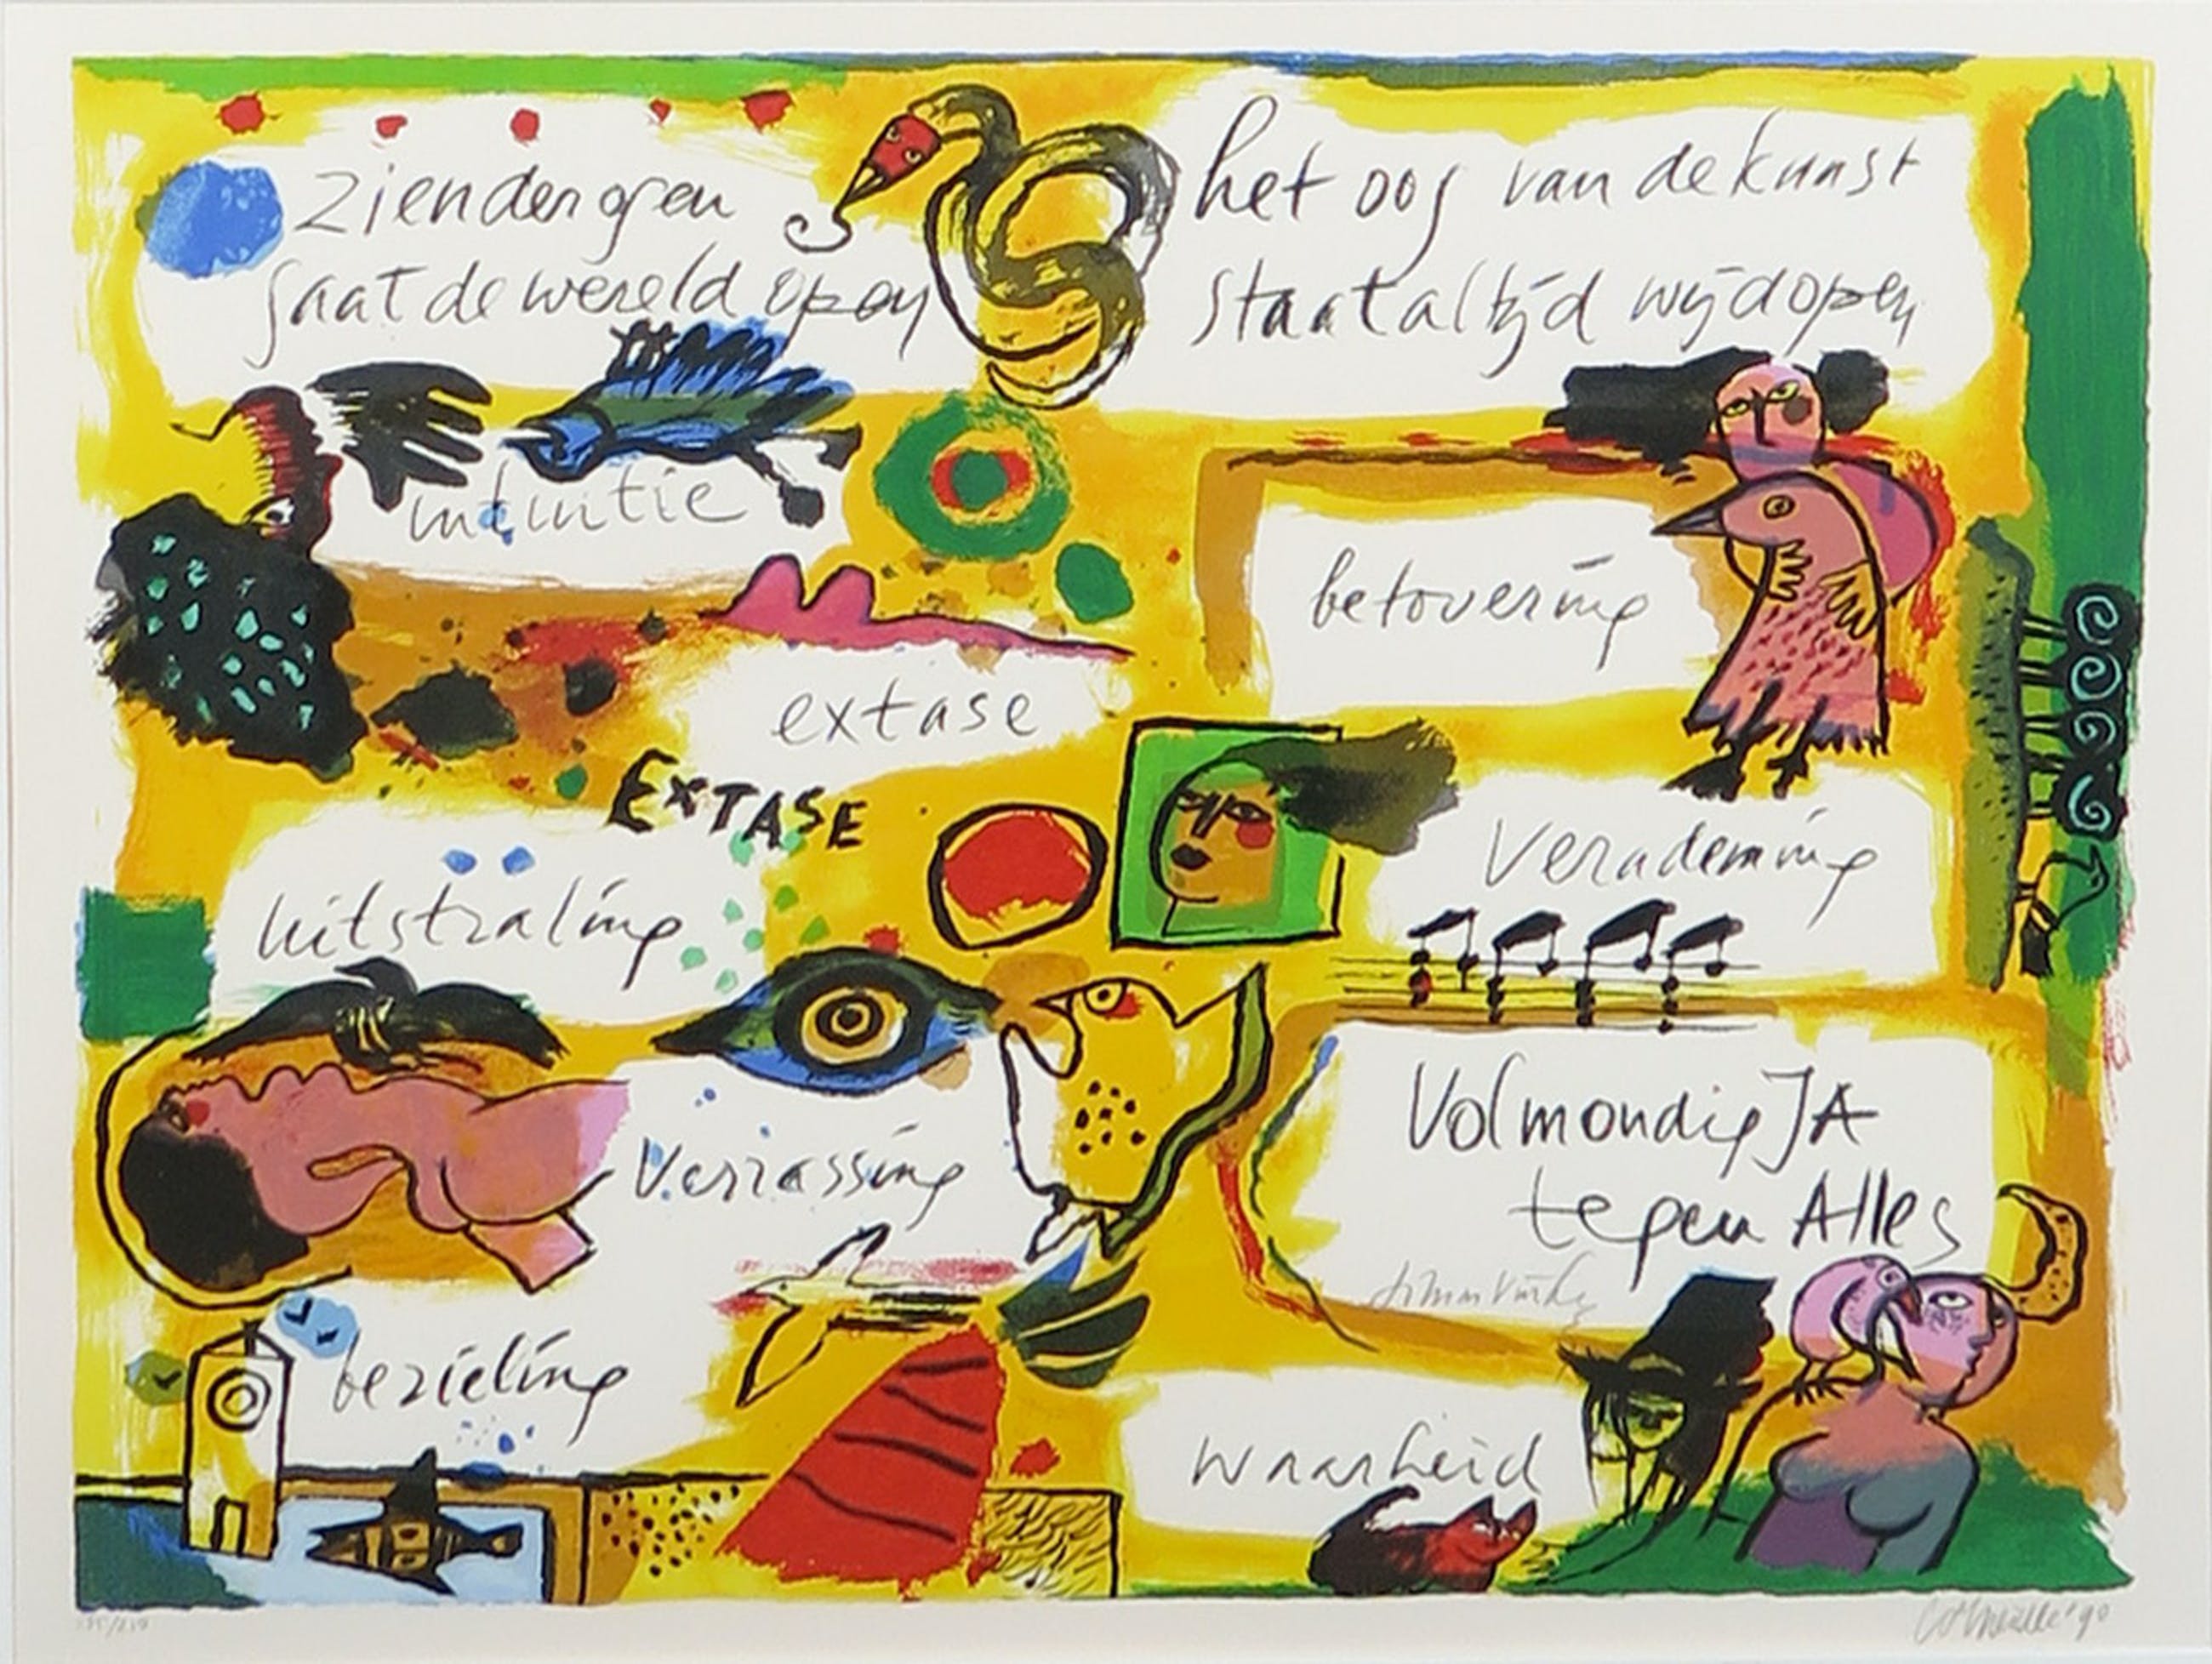 ziender ogen
gaat de wereld open
het oog van de kunst
staat altijd wijd open
intuitie
betovering
extase
EXTASE
verademing
uitstraling
Volmondig JA
tegen Alles
verrassing
bezieling
waarheid
Corneille '90